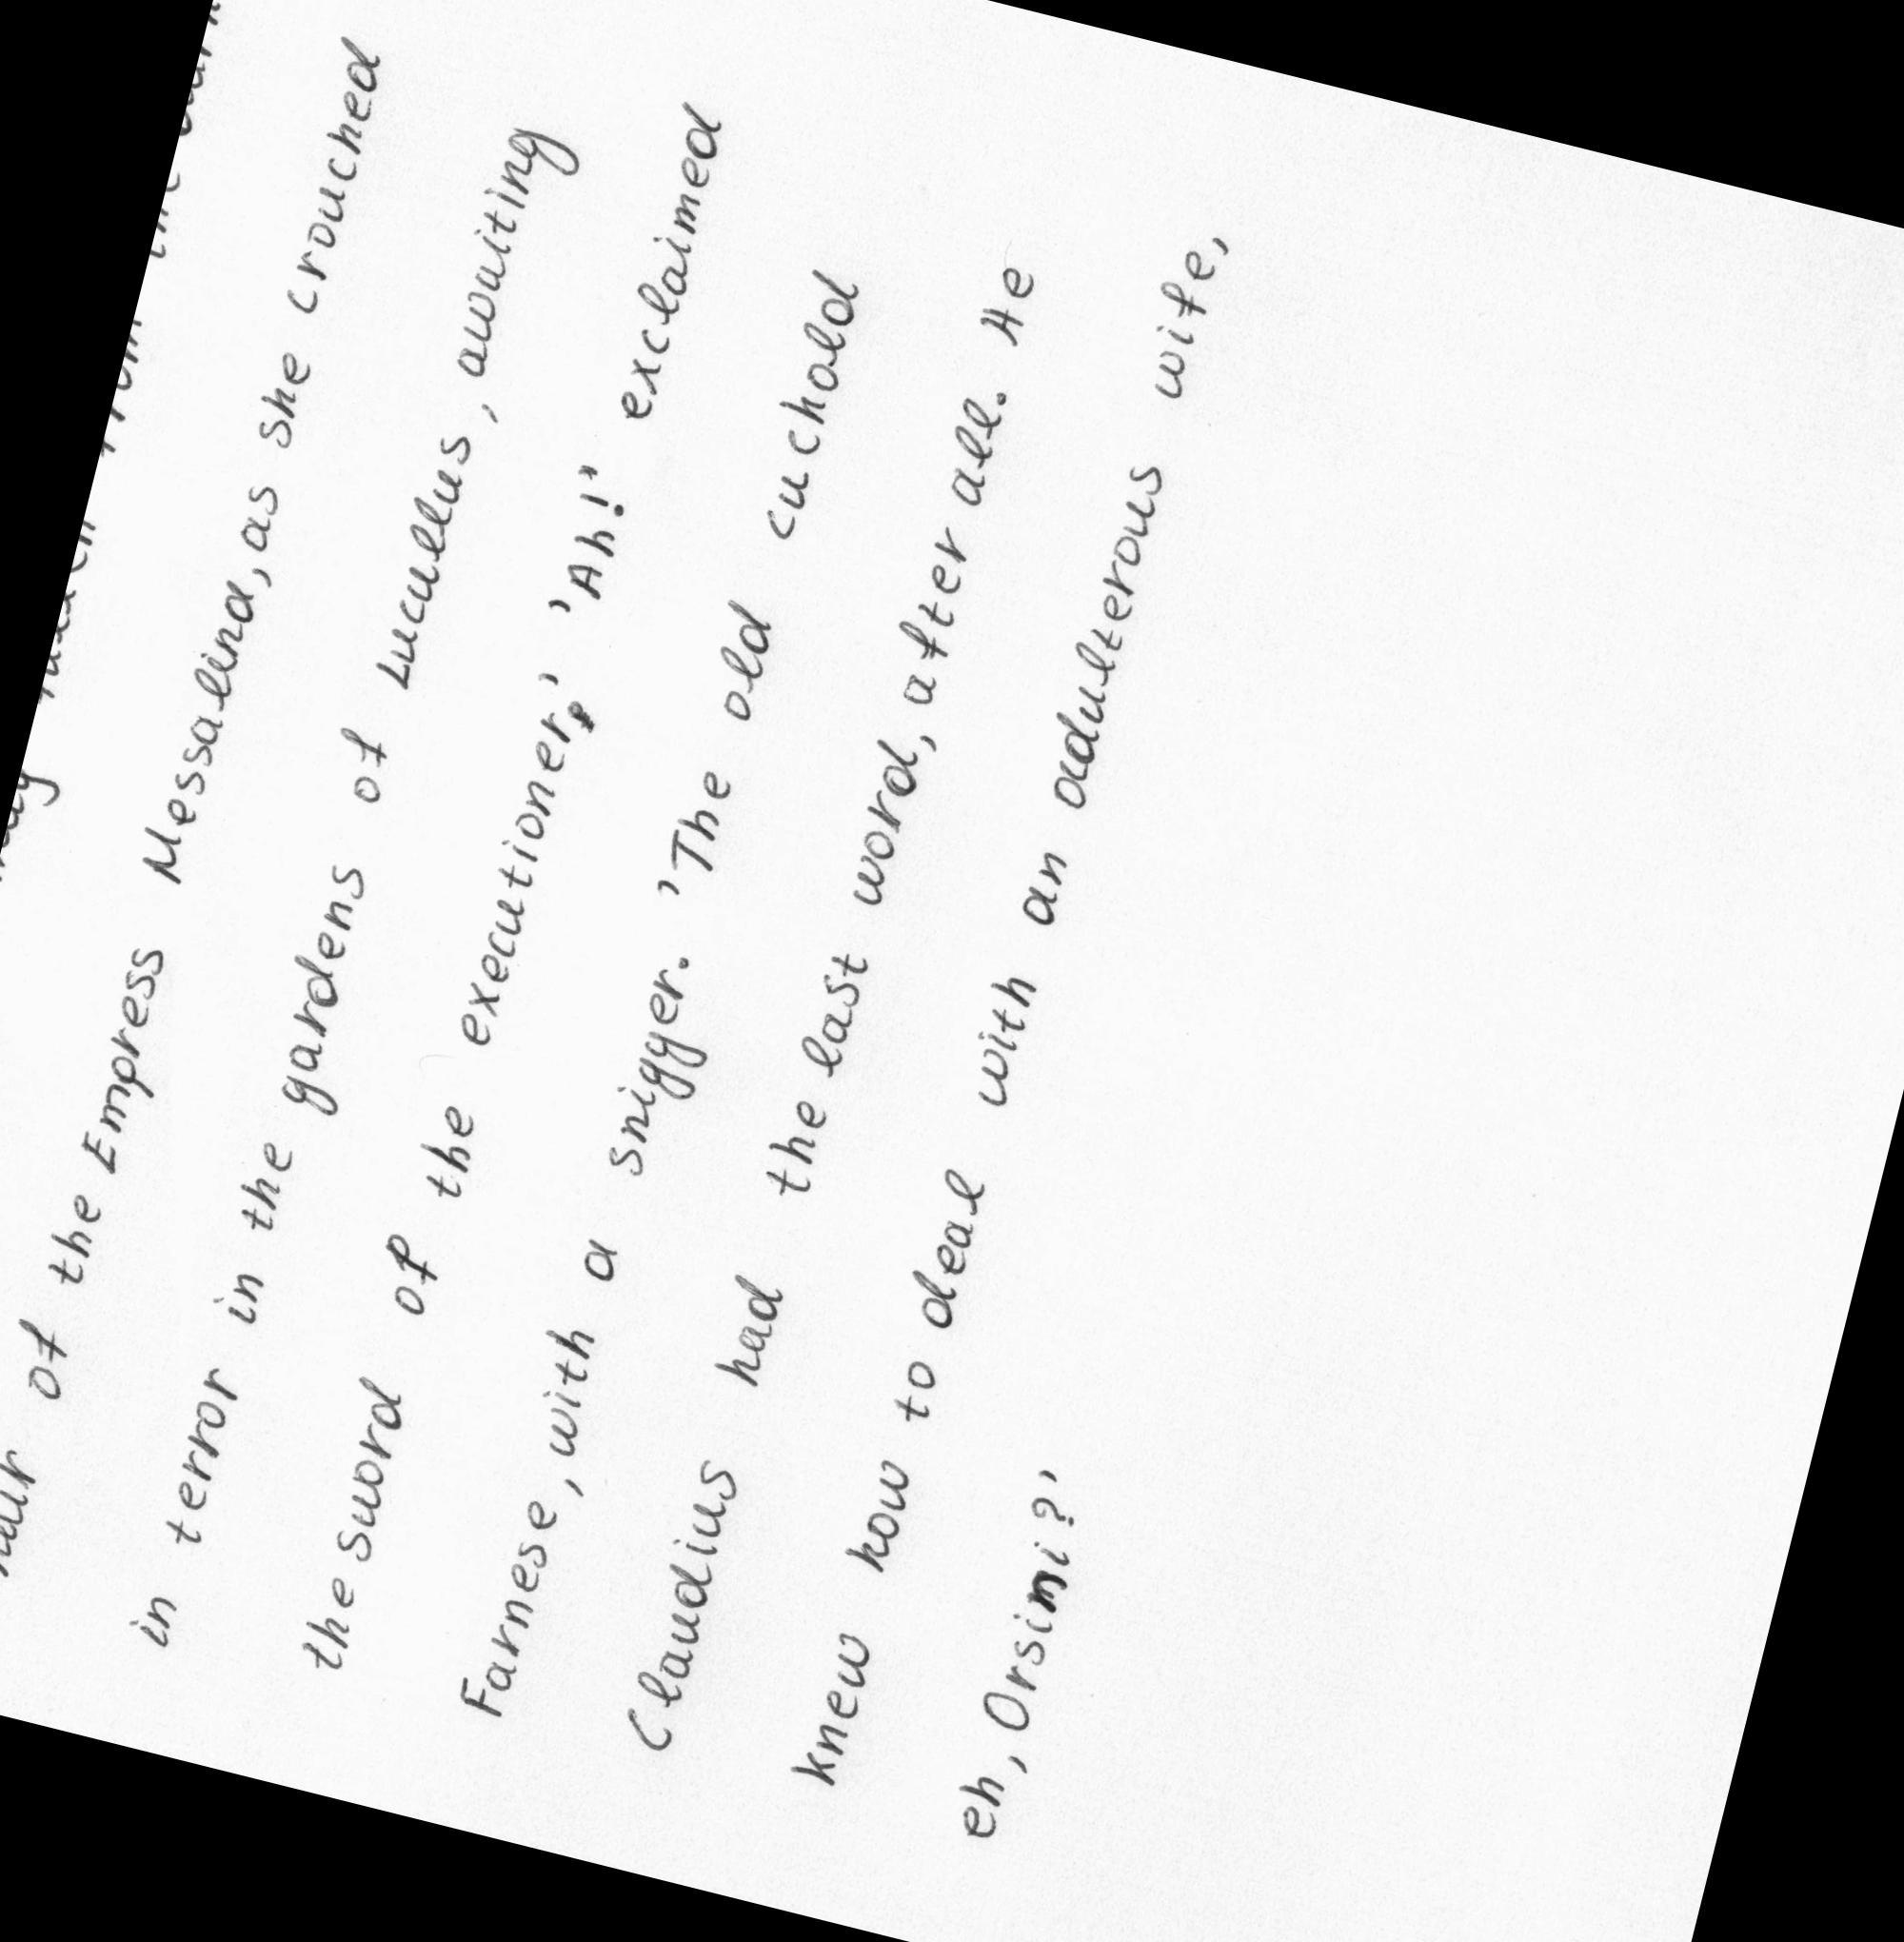 hair of the Empress Messalina, as she crouched
in terror in the gardens of Lucullus, awaiting
the sword of the executioner.' 'Ah!' exclaimed
Farnese, with a snigger. 'The old cuchold
Claudius had the last word, after all. He
knew how to deal with an adulterous wife,
eh, Orsini?'